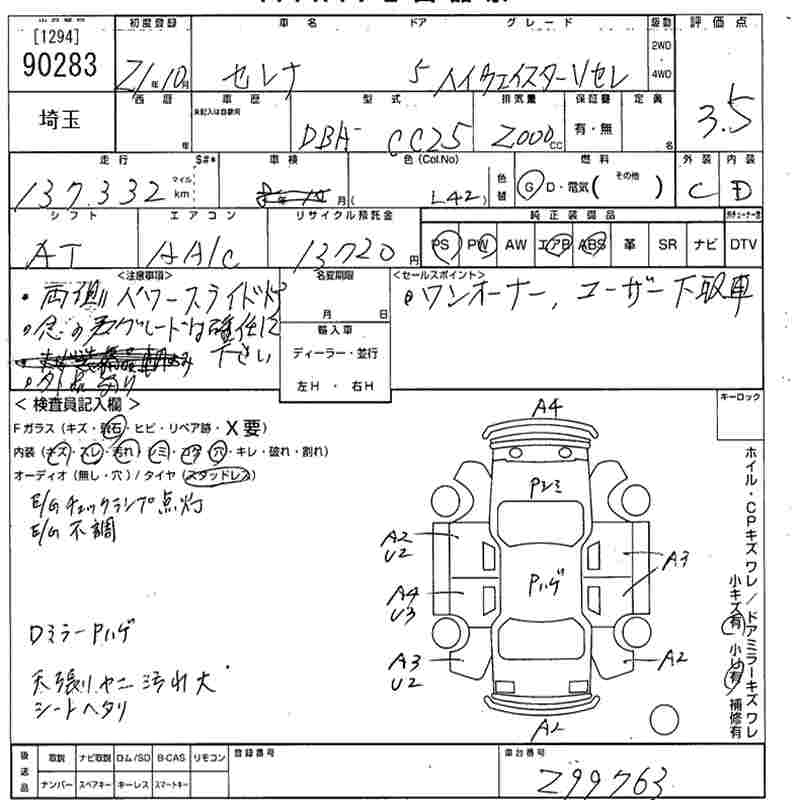 [1294]
90283
埼玉
初度登録
21年10月
車名
セレナ
ドア
5
グレード
ハイウェイスターVセレ
駆動
2WD
・
4WD
評価点
3.5
西暦
年
車歴
未記入は自家用
型式
DBA- CC25
排気量
2000cc
保証書
有・無
定員
名
走行
137,332
マイル
km
S#*
車検
年 月
色(Col.No)
( L42 )
色替
燃料
G D・電気( その他 )
外装
C
内装
D
シフト
AT
エアコン
AA/C
リサイクル預託金
13720円
純正装備品
PS PW AW エアB ABS 革 SR ナビ
DTV
<注意事項>
・両側パワースライドドア
・念の為グレードは確任に
下さい
・外品有り
名変期限
月 日
輸入車
ディーラー・並行
左H ・ 右H
<セールスポイント>
・ワンオーナー, ユーザー下取車
<検査員記入欄>
Fガラス(キズ・飛石・ヒビ・リペア跡・X要)
内装(キズ・スレ・汚れ・シミ・コゲ・穴・キレ・破れ・割れ)
オーディオ(無し・穴)/タイヤ(スタッドレス)
E/Gチェックランプ点灯
E/G不調
Dミラー Pハゲ
天張りヤニ汚れ大
シートヘタリ
キーロック
A4
Pシミ
A2
U2
Pハゲ
A3
A4
U3
A3
U2
A2
A2
ホイル・CPキズワレ/ドアミラーキズワレ
小キズ有 小凹有 補修有
返送品
取説 ナビ取説 ロム/SD B-CAS リモコン
ナンバー スペアキー キーレス スマートキー
登録番号
車台番号
299763